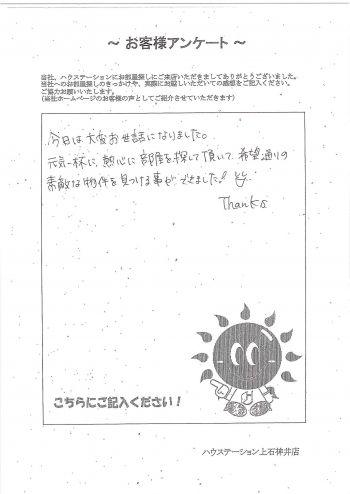 ～ お客様アンケート ～
当社、ハウステーションにお部屋探しにご来店いただきましてありがとうございました。
当社へのお部屋探しのきっかけや、実際にお越しいただいての感想をご記入ください。
ご協力お願いいたします。
(当社ホームページのお客様の声としてご紹介させていただきます)
今日は大変お世話になりました。
元気一杯に、熱心に部屋を探して頂いて、希望通りの
素敵な物件を見つける事ができました!
Thanks
こちらにご記入ください!
ハウステーション上石神井店